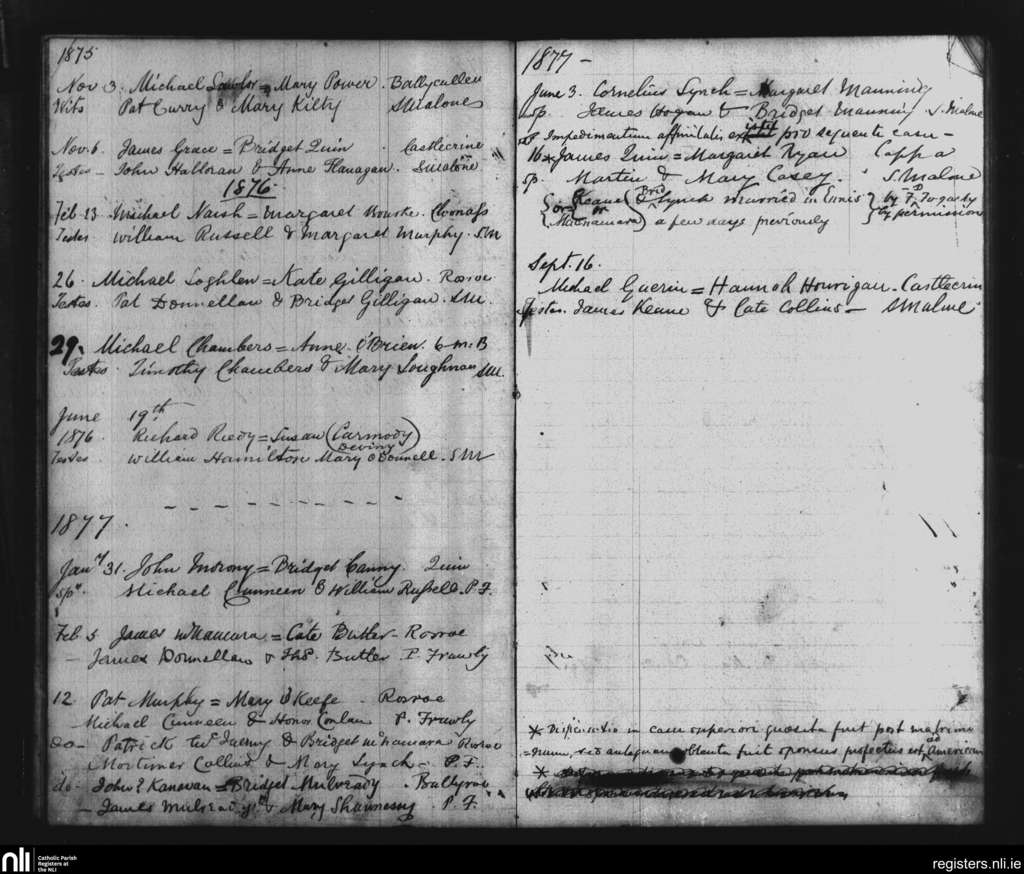 1875
Nov 3. Michael Lawlor = Mary Power. Ballycullen
Wits Pat Curry & Mary Kilty SMalone
Nov. 6. James Grace = Bridget Quin. Castlecrine
Testes - John Halloran & Anne Flanagan. SMalone
1876.
Feb 13 Michael Naish = Margaret Bourke. Cloonass
Testes William Russell & Margaret Murphy. SM
26. Michael Loghlen = Kate Gilligan. Rosroe
Testes. Pat Donnellan & Bridget Gilligan. SM.
29. Michael Chambers = Anne O'Brien. 6 m. B
Testes. Timothy Chambers & Mary Loughnan SM.
June 19th
1876. Richard Reedy = Susan (Carmody)
Deviny
Testes William Hamilton Mary O'Donnell. SM
1877.
Jany 31. John Morony = Bridget Canny. Quin
Sps. Michael Cunneen & William Russell. P. F.
Feb 5 James McNamara = Cate Butler - Rosroe
- James Donnellan & Ths. Butler P. Frawly
12 Pat Murphy = Mary O'Keefe - Rosroe
Michael Cunneen & Honor Conlan P. Frawly
do - Patrick & Bridget McNamara Rosroe
Mortimer Collins & Mary Lynch - P. F.
do - John Kanevan = Bridget Mulready. Ballyroe
- James Mulready & Mary Shaunessy. P. F.
1877 -
June 3. Cornelius Lynch = Margaret Manning
Sp. James Hogan & Bridget Manning S. Malone
Impedimentum affinitatis pro sequente casu -
16 * James Quin = Margaret Ryan Cappa
Sp. Martin & Mary Casey. S. Malone
{or Keane (& Brid Lynch married in Ennis } by F. Fogarty
or Macnamara) a few days previously } by permission
Sept. 16.
Michael Guerin = Hannah Hourigan. Castlecrin
Testes. James Keane & Cate Collins - SMalone
* Dispensatio in casu superiori fuit post matrimo
=nium, sed antequam obtenta fuit sponsus profectus est ad American
nli
Catholic Parish
Registers at
the NLI
registers.nli.ie